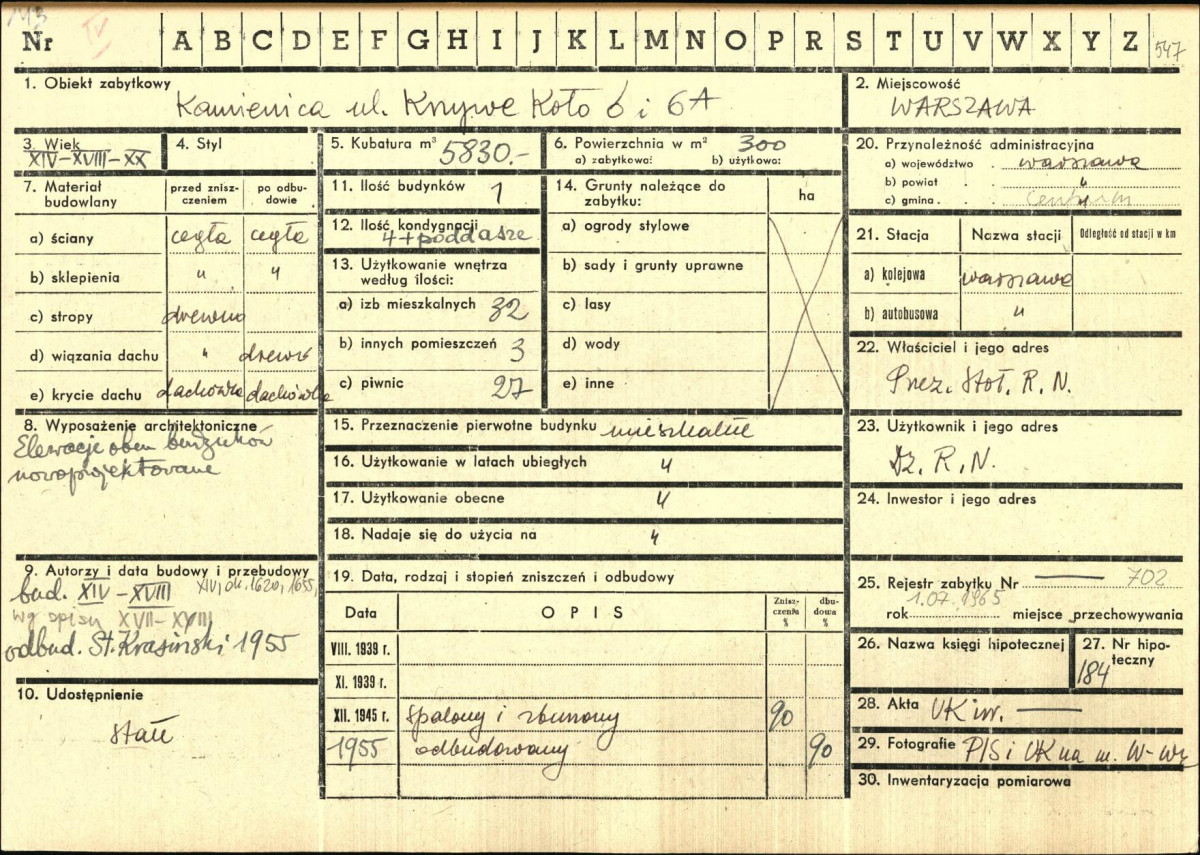 143 IV
Nr A B C D E F G H I J K L M N O P R S T U V W X Y Z 547
1. Obiekt zabytkowy
Kamienica ul. Krzywe Koło 6 i 6A
2. Miejscowość
WARSZAWA
3. Wiek
XIV-XVIII-XX
4. Styl
5. Kubatura m³ 5830.-
6. Powierzchnia w m² 300
a) zabytkowa: b) użytkowa:
20. Przynależność administracyjna
a) województwo warszawa
b) powiat "
c) gmina centrum
7. Materiał budowlany
przed zniszczeniem
po odbudowie
a) ściany cegła cegła
b) sklepienia " "
c) stropy drewno
d) wiązania dachu " drewno
e) krycie dachu dachówka dachówka
11. Ilość budynków 1
12. Ilość kondygnacji
4 + poddasze
13. Użytkowanie wnętrza
według ilości:
a) izb mieszkalnych 32
b) innych pomieszczeń 3
c) piwnic 27
14. Grunty należące do
zabytku:
ha
a) ogrody stylowe
b) sady i grunty uprawne
c) lasy
d) wody
e) inne
21. Stacja Nazwa stacji Odległość od stacji w km
a) kolejowa warszawa
b) autobusowa "
22. Właściciel i jego adres
Prez. Stoł. R. N.
8. Wyposażenie architektoniczne
Elewacje obu budynków
nowoprojektowane
15. Przeznaczenie pierwotne budynku mieszkalne
16. Użytkowanie w latach ubiegłych "
17. Użytkowanie obecne "
18. Nadaje się do użycia na "
23. Użytkownik i jego adres
Dz. R. N.
24. Inwestor i jego adres
9. Autorzy i data budowy i przebudowy
bud. XIV - XVIII XIV, ok. 1620, 1655,
wg opisu XVII-XVIII
odbud. St. Krasiński 1955
10. Udostępnienie
stałe
19. Data, rodzaj i stopień zniszczeń i odbudowy
Data OPIS Zniszczenia % dbudowa %
VIII. 1939 r.
XI. 1939 r.
XII. 1945 r. spalony i zburzony 90
1955 odbudowany 90
25. Rejestr zabytku Nr 702
1.07.1965
rok miejsce przechowywania
26. Nazwa księgi hipotecznej
27. Nr hipoteczny
184
28. Akta UK inw.
29. Fotografie PIS i UK na m. W-wę
30. Inwentaryzacja pomiarowa